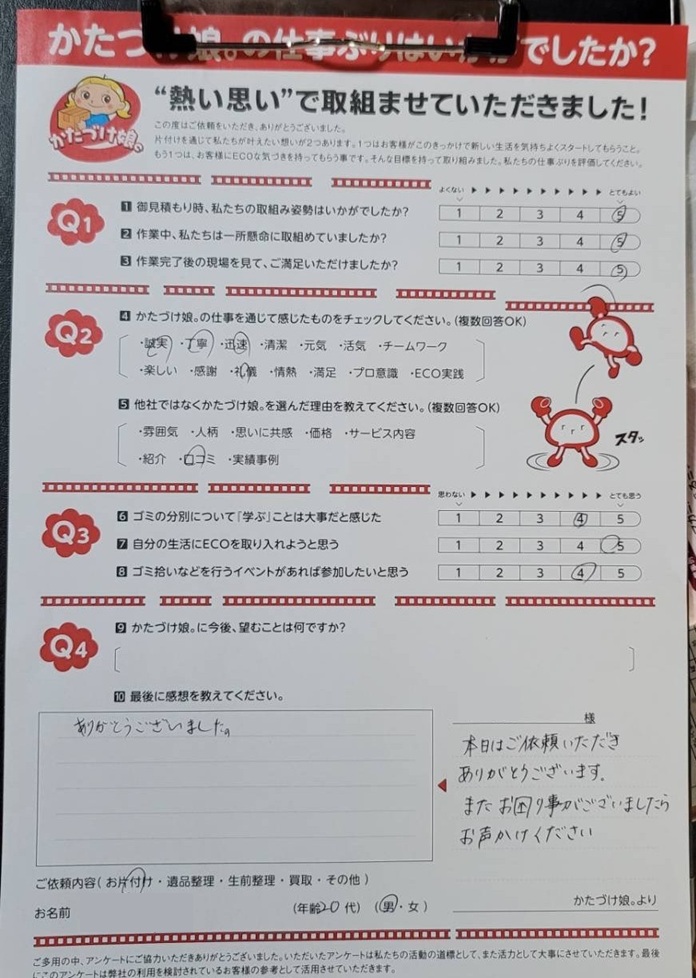 かたづけ娘。の仕事ぶりはいかがでしたか？
かたづけ娘。
“熱い思い”で取組ませていただきました！
この度はご依頼をいただき、ありがとうございました。
片付けを通じて私たちが叶えたい想いが2つあります。1つはお客様がこのきっかけで新しい生活を気持ちよくスタートしてもらうこと。
もう1つは、お客様にECOな気づきを持ってもらう事です。そんな目標を持って取り組みました。私たちの仕事ぶりを評価してください。
よくない ▶ ▶ ▶ ▶ ▶ ▶ ▶ ▶ ▶ ▶ とてもよい
Q1
1 御見積もり時、私たちの取組み姿勢はいかがでしたか？ 1 2 3 4 5
2 作業中、私たちは一所懸命に取組めていましたか？ 1 2 3 4 5
3 作業完了後の現場を見て、ご満足いただけましたか？ 1 2 3 4 5
Q2
4 かたづけ娘。の仕事を通じて感じたものをチェックしてください。（複数回答OK）
・誠実 ・丁寧 ・迅速 ・清潔 ・元気 ・活気 ・チームワーク
・楽しい ・感謝 ・礼儀 ・情熱 ・満足 ・プロ意識 ・ECO実践
5 他社ではなくかたづけ娘。を選んだ理由を教えてください。（複数回答OK）
・雰囲気 ・人柄 ・思いに共感 ・価格 ・サービス内容
・紹介 ・口コミ ・実績事例
スタッ
思わない ▶ ▶ ▶ ▶ ▶ ▶ ▶ ▶ ▶ ▶ とても思う
Q3
6 ゴミの分別について「学ぶ」ことは大事だと感じた 1 2 3 4 5
7 自分の生活にECOを取り入れようと思う 1 2 3 4 5
8 ゴミ拾いなどを行うイベントがあれば参加したいと思う 1 2 3 4 5
Q4
9 かたづけ娘。に今後、望むことは何ですか？
10 最後に感想を教えてください。
ありがとうございました。
様
本日はご依頼いただき
ありがとうございます。
また お困り事がございましたら
お声かけください
かたづけ娘。より
ご依頼内容（ お片付け・遺品整理・生前整理・買取・その他 ）
お名前 （年齢20代） （男・女）
ご多用の中、アンケートにご協力いただきありがとうございました。いただいたアンケートは私たちの活動の道標として、また活力として大事にさせていただきます。最後
にこのアンケートは弊社の利用を検討されているお客様の参考として活用させていただきます。